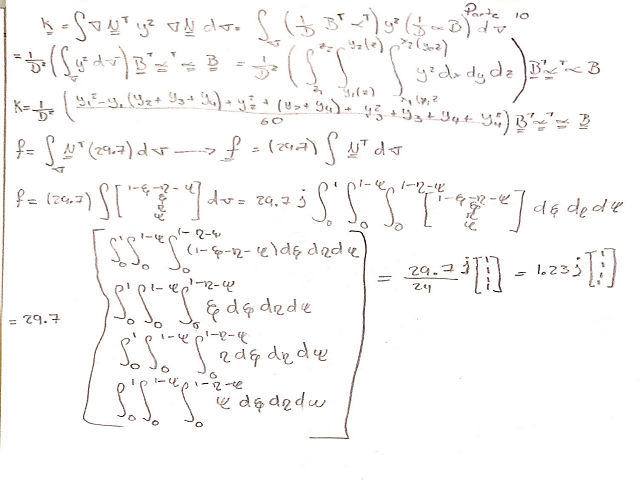 Parte 10
K = ∫ ∇N^T y² ∇N dv = ∫_v (1/D B^T α^T) y² (1/D α B) dv
= 1/D² (∫_v y² dv) B^T α^T α B = 1/D² (∫_{z1}^{z2} ∫_{y1(z)}^{y2(z)} ∫_{x1(y,z}^{x2(y,z)} y² dx dy dz) B^T α^T α B
K = 1/D² (y1² - y1 (y2 + y3 + y4) + y2² + (y3 + y4) + y3² + y3 + y4 + y4² / 60) B^T α^T α B
f = ∫_v N^T (29.7) dv → f = (29.7) ∫ N^T dv
f = (29.7) ∫ [1-ξ-η-ψ ξ η ψ] dv = 29.7 j ∫_0^1 ∫_0^{1-ψ} ∫_0^{1-η-ψ} [1-ξ-η-ψ ξ η ψ] dξ dη dψ
= 29.7 [ ∫_0^1 ∫_0^{1-ψ} ∫_0^{1-η-ψ} (1-ξ-η-ψ) dξ dη dψ
∫_0^1 ∫_0^{1-ψ} ∫_0^{1-η-ψ} ξ dξ dη dψ
∫_0^1 ∫_0^{1-ψ} ∫_0^{1-η-ψ} η dξ dη dψ
∫_0^1 ∫_0^{1-ψ} ∫_0^{1-η-ψ} ψ dξ dη dψ ] = 29.7/24 j [1 1 1 1] = 1.23 j [1 1 1 1]